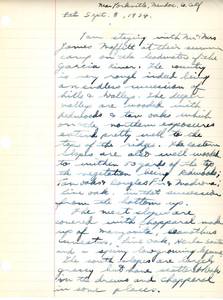 Near Yorkville, Mendoc. Co. Calif
Oct Sept. 8, 1934.
I am staying with Mr + Mrs
James Moffitt at their summer
camp on the headwaters of the
Garcia River. The country
is very rough indeed being
an endless succession of
hills + Valleys. The deep
valleys are wooded with
redwoods + tan oaks which
on the northern exposures
extend pretty well to the
tops of the ridges. The eastern
slopes are also well wooded
to within of the top
the vegetation being Redwoods,
Tan oaks + Douglas fir + Madrone +
live oak in that succession
from the bottom up.
The west slopes are
covered with chapparal made
up of manzanita, ceanothus
live oak,
spiny
The south slopes are largely
grassy but have scattered oaks
in the draws and chapparal
in some places.